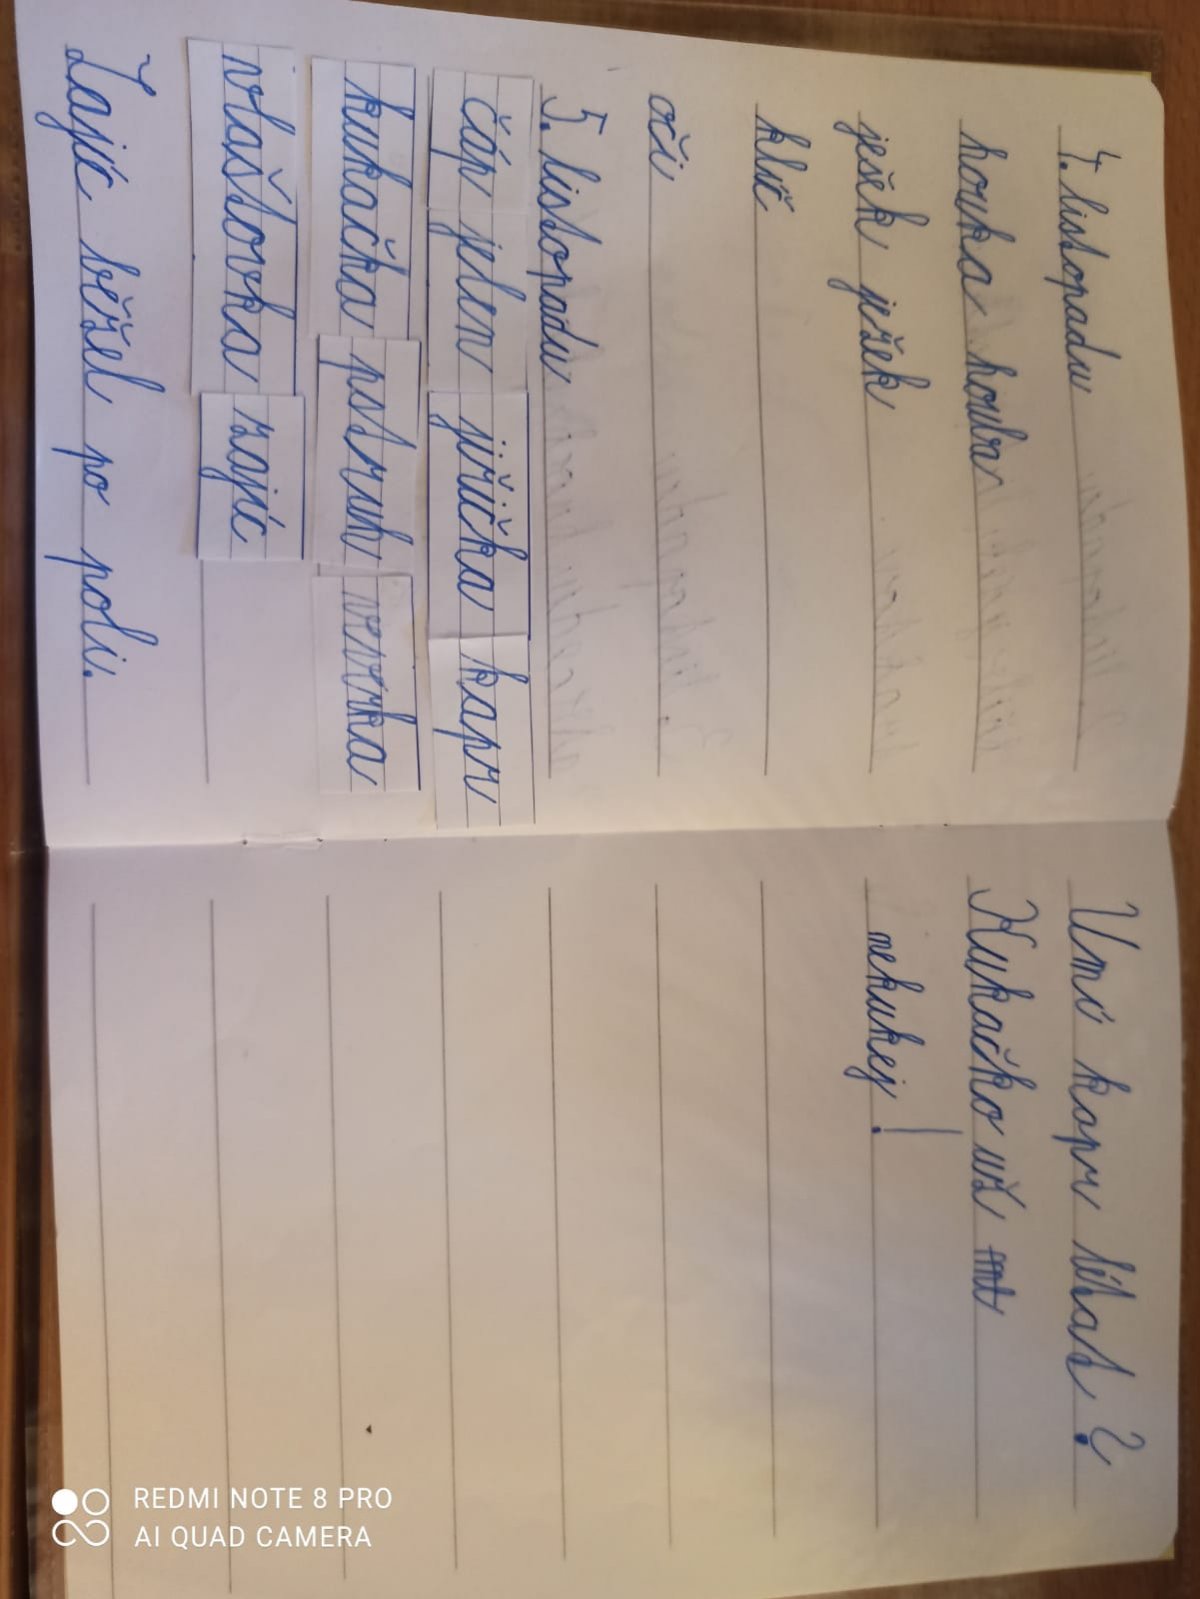 4. listopadu
houka houba
ješek ježek
klíč
oči
5. listopadu
čáp jelen jiřička kapr
kukačka pstruh veverka
vlaštovka zajíc
Zajíc běžel po poli.
Umí kapr létat?
Kukačko už
nekukej!
REDMI NOTE 8 PRO
AI QUAD CAMERA